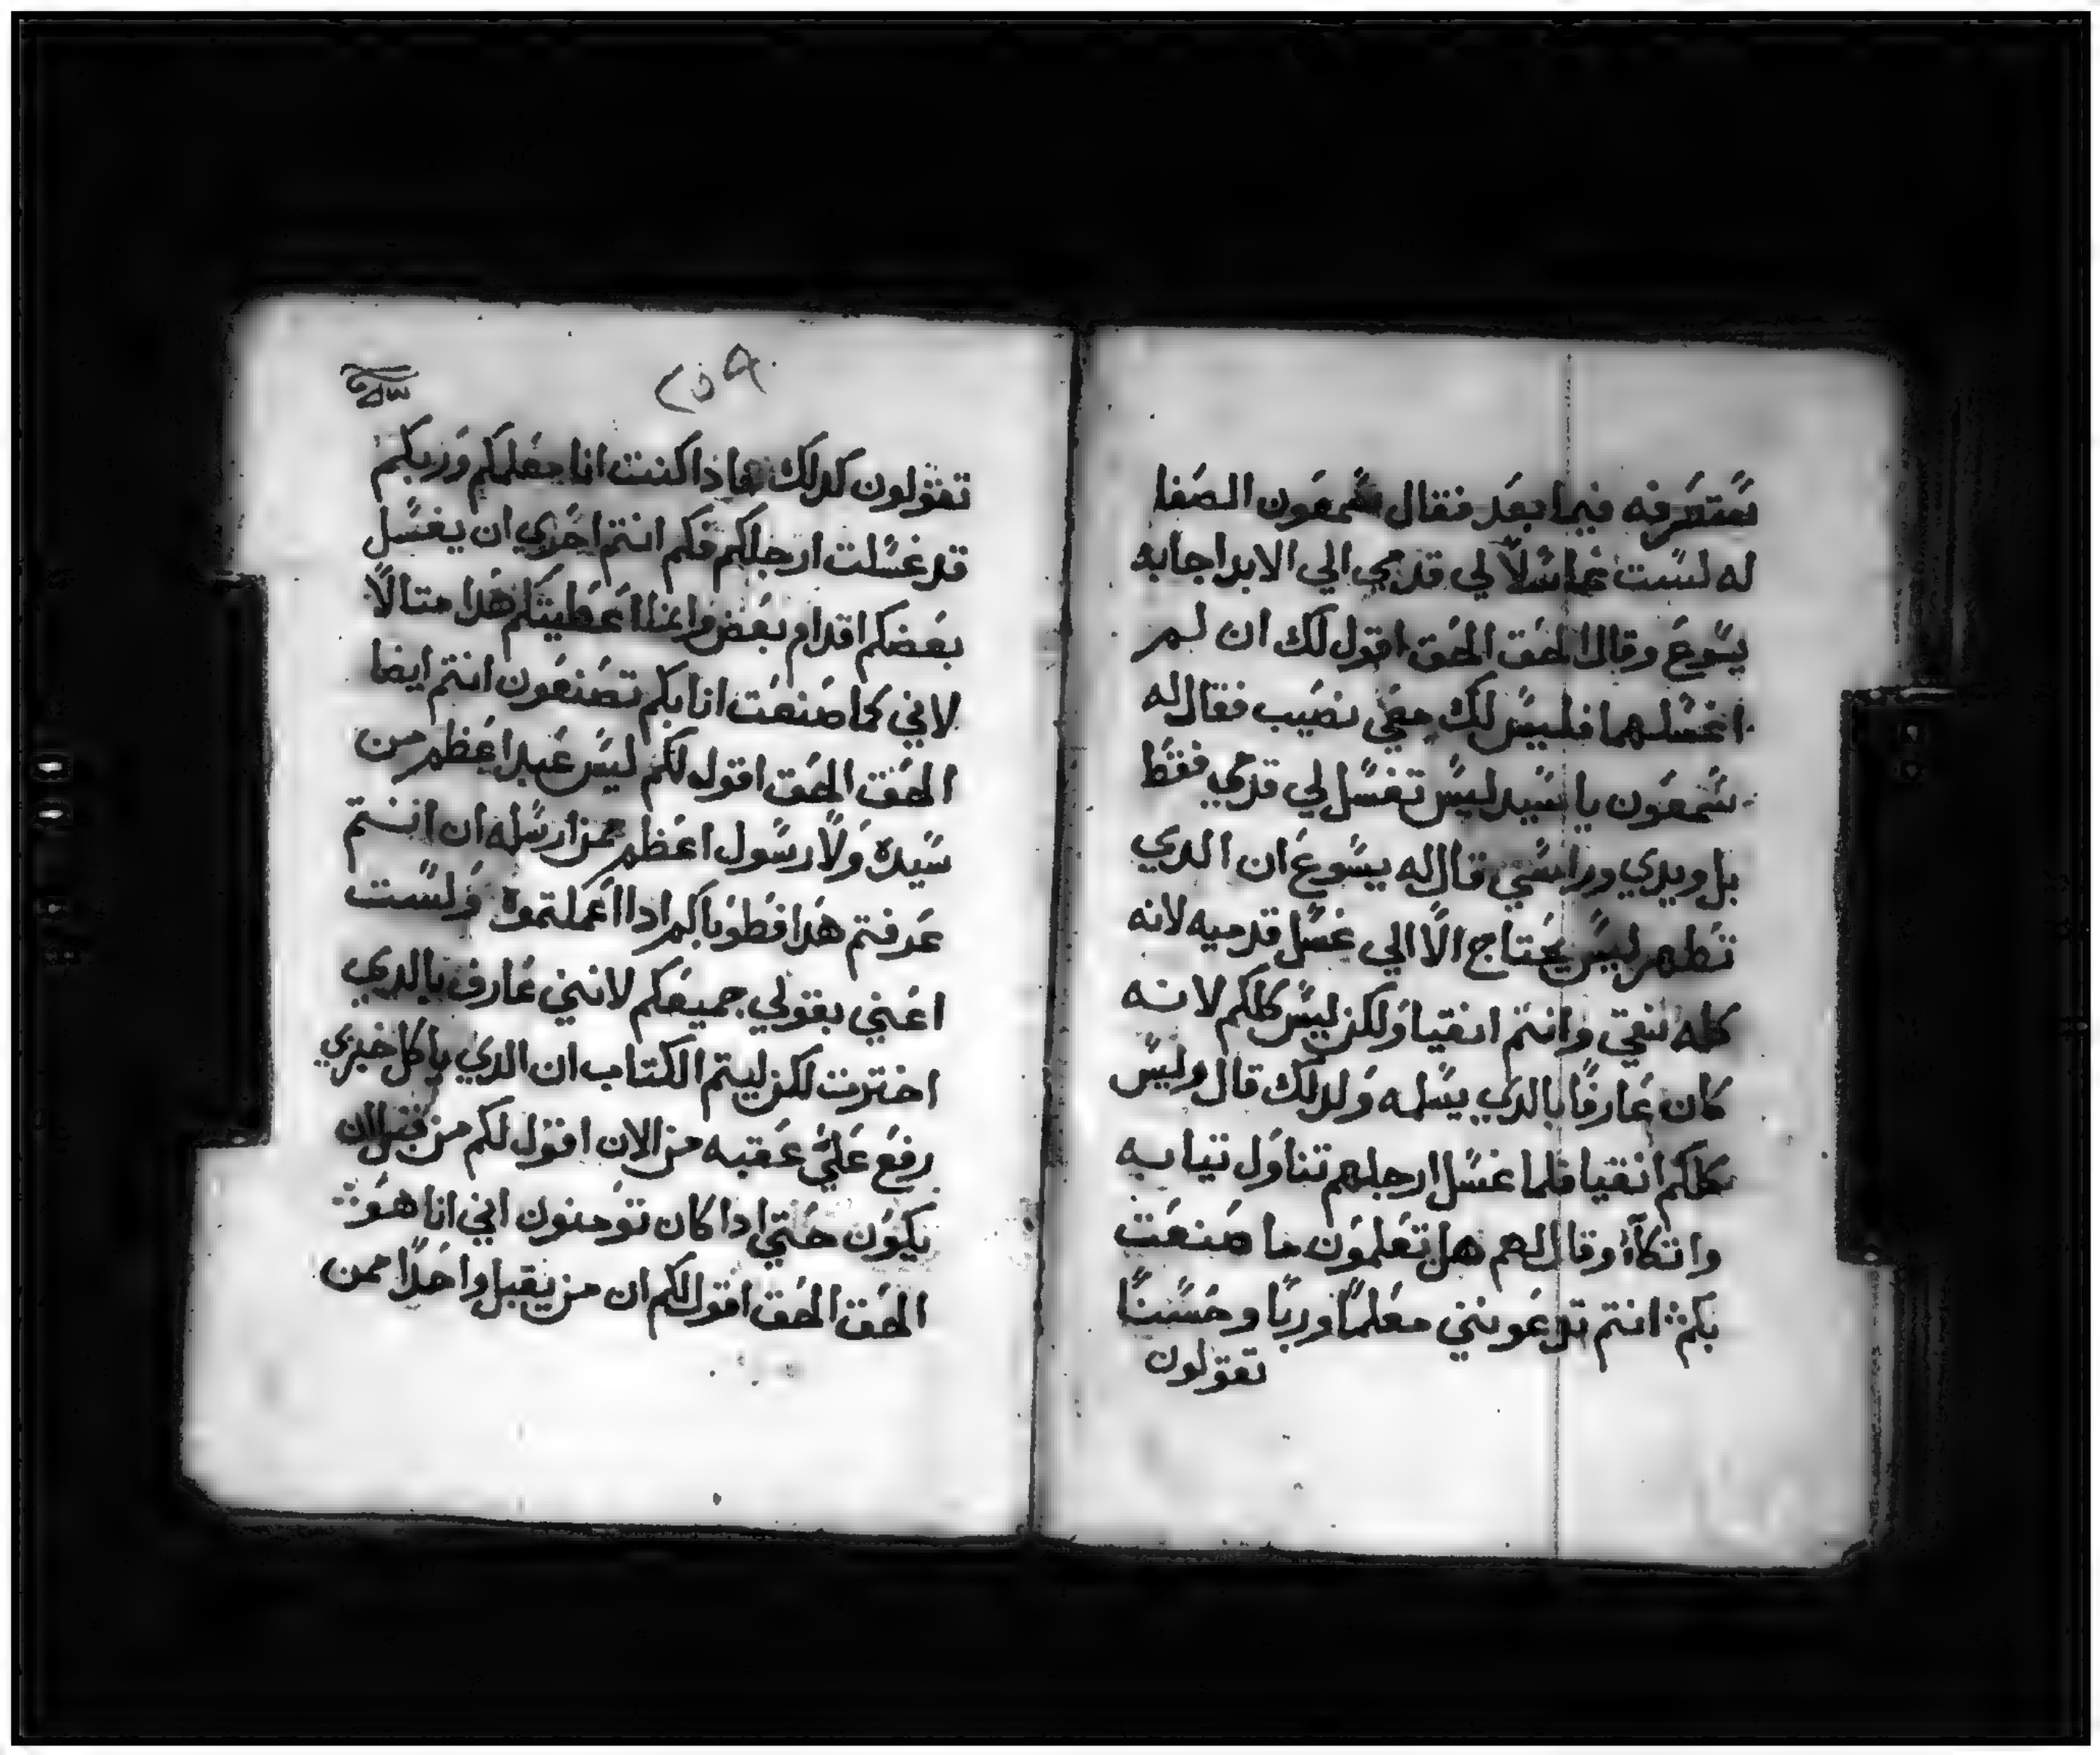 ستعرفه فيما بعد فقال شمعون الصفا
له لست غاسلاً لي قدمي الي الابد اجابه
يسوع وقال الحق الحق اقول لك ان لم
اغسلهما فليس لك معي نصيب فقال له
شمعون يا سيد ليس تغسل لي قدمي فقط
بل ويدي وراسي قال له يسوع ان الدي
تطهر ليس يحتاج الا الي غسل قدميه لانه
كله نقي وانتم انقيا ولكن ليس كلكم لانه
كان عارفًا بالدي يسلمه ولدلك قال وليس
كلكم انقيا فلما غسل ارجلهم تناول تيابه
واتكأ وقال لهم هل تعلمون ما صنعت
بكم انتم تدعونني معلمًا وربًا وحسنًا
تقولون
٢٥٩
تقولون كدلك فاذا كنت انا معلمكم وربكم
قد غسلت ارجلكم فكم انتم احري ان يغسل
بعضكم اقدام بعض وانما اعطيتكم هدا متالاً
لاني كما صنعت انا بكم تصنعون انتم ايضا
الحق الحق اقول لكم ليس عبد اعظم من
سيده ولا رسول اعظم ممن ارسله ان انتم
عرفتم هدا فطوباكم ادا اعملتموه ولست
اعني بقولي جميعكم لانني عارف بالدي
اخترت لكن ليتم الكتاب ان الدي ياكل خبزي
رفع علي عقبه من الان اقول لكم من قبل ان
يكون حتي ادا كان تومنون اني انا هو
الحق الحق اقول لكم ان من يقبل واحدًا ممن